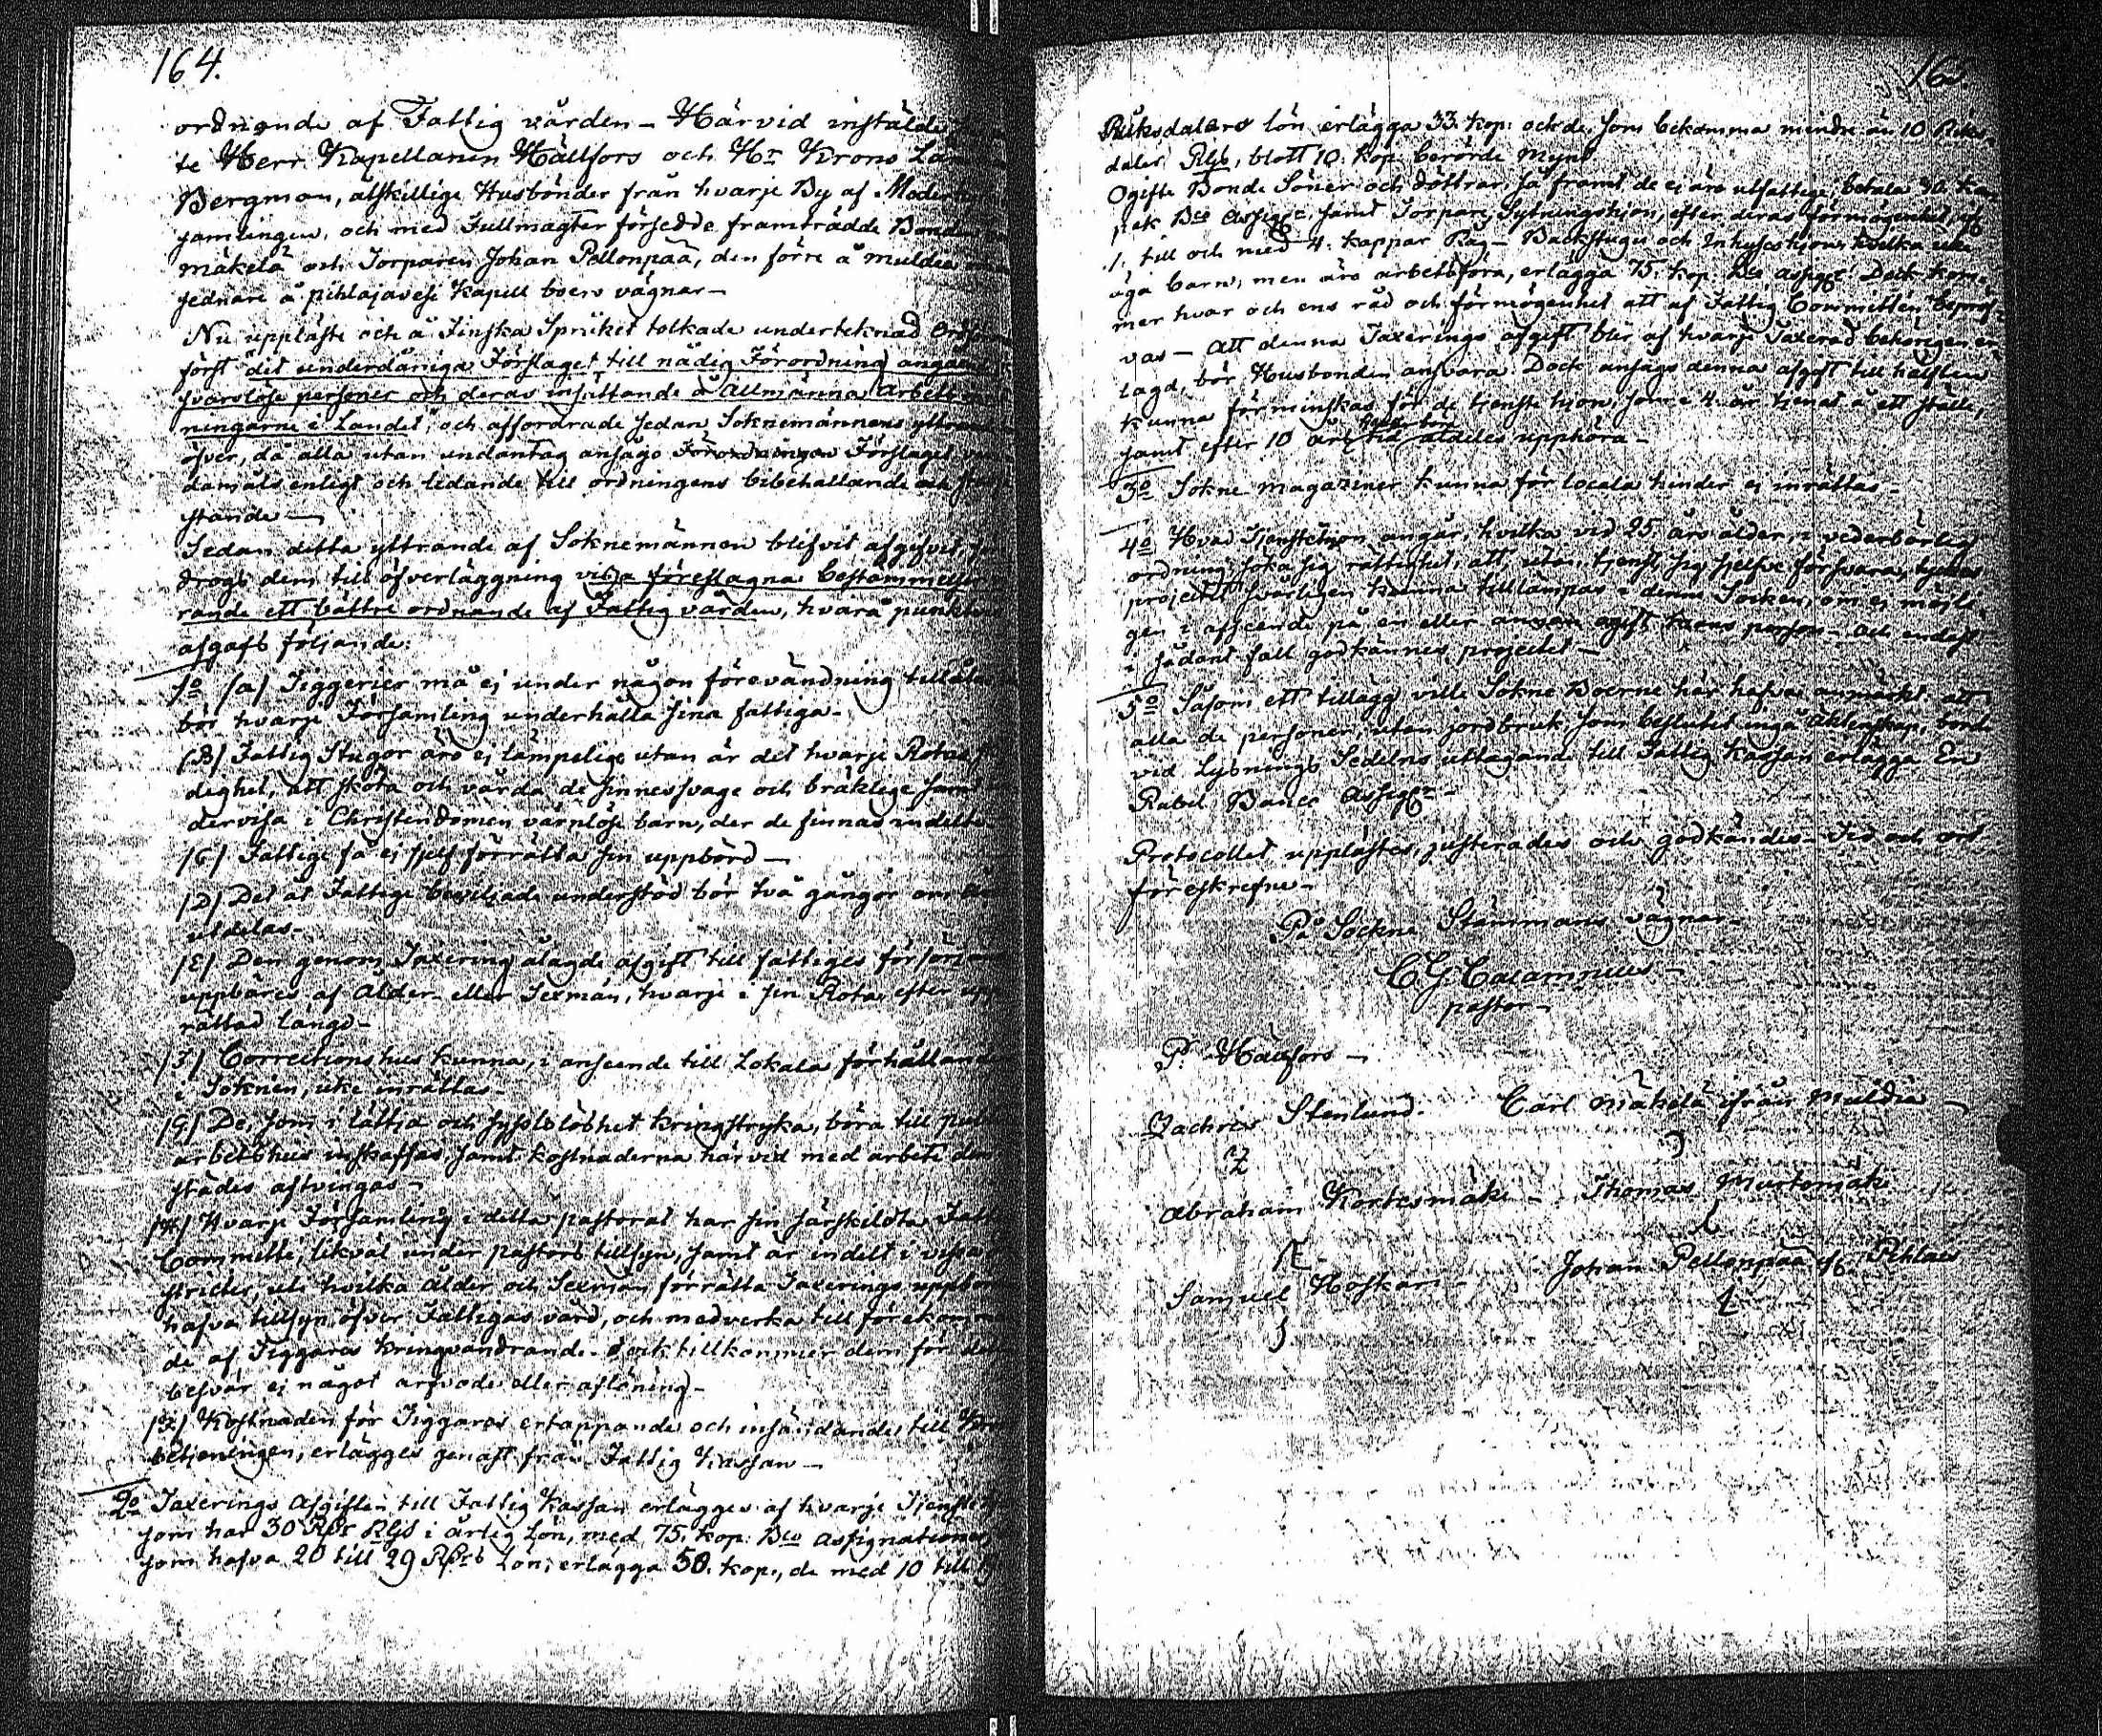 164.
ordnande af Fattig vården – Härvid instälde
te Herr Kapellanen Hällfors och Hr Krono Län
Bergman, åtskillige Husbönder från hvarje By af Moder
samlingen, och med Fullmagter försedde framträdde Bonden
mäkelä och Torparen Johan Pellonpää, den förre å muldia
sednare å pihlajavesi Kapell boers vägnar –
Nu upplästes och å Finska Språket tolkade underteknad Ord
först det underdåniga Förslaget till nådig Förordning angående
svarslöse personer och deras insättande å Allmänna Arbets
ningarne i Landet, och affordrade sedan Soknemännens yttrande
öfver, då alla utan undantag ansågo Förordningen Förslaget
damåls enligt och ledande till ordningens bibehållande och
stande –
Sedan detta yttrande af Soknemännen blifvit afgifvet,
drogs dem till öfverläggning vissa föreslagna bestämmelser
rande ett bättre ordnande af Fattig vården, hvarå punktvis
afgafs följande:
1o /a/ Tiggerier må ej under någon förevändning tillåtas
bör hvarje Församling underhålla sina fattiga –
/B/ Fattig Stugor äro ej lämpelige utan är det hvarje Rotas
dighet, att sköta och vårda de sinnessvage och bräklige samt
dervisa i Christendomen värnlöse barn, der de finnas indelte
/C/ Fattige få ej sjelf förrätta sin uppbörd –
/D/ Det åt Fattige beviljade understöd bör två gångor om
utdelas –
/E/ Den genom Taxering ålagde afgift till fattiges försörj
uppbäres af Ålder- eller Sexmän, hvarje i sin Rota, efter upp
rättad längd –
/F/ Corrections hus kunna, i anseende till Lokala förhålland
i Soknen, icke inrättas –
/G/ De, som i lättja och sysslolöshet kringstryka, böra till
arbetshus inskaffas, samt kostnaderna härvid med arbete der
städes aftvingas –
/H/ Hvarje Församling i detta pastorat har sin särskildta Fatt
Committé, likväl under pastors tillsyn, samt är indelt i vissa
stricter, uti hvilka Ålder och Sexmän förrätta Taxerings uppbör
hafva tillsyn öfver Fattigas vård, och medverka till förekomm
de af Tiggares kringvandrande. Dock tillkommer dem för det
besvär ej något arfvode eller aflöning –
/I/ Kostnaden för Tiggares ertappande och insändande till Kro
betjeningen, erlägges genast från Fattig Kassan –
2o Taxerings Afgiften till Fattig Kassan erlägges af hvarje Tjenste
som har 30 Rdr Rgs i årlig Lön, med 75. kop. Bco assignationer,
som hafva 20 till 29 Rdrs Lön, erlägga 50. kop., de med 10 till
165.
Riksdalers lön erlägga 33. kop: och de som bekomma mindre än 10 Riks
daler Rgs, blott 10. kop. berörde Mynt
Ogifte Bonde Söner och döttrar, så framt de ej äro utfattige, betala 30. ko
pek Bco Assigr. samt Torpare, Sytningshjon, efter deras förmögenhet,
1. till och med 4. kappar Råg – Backstugu och Inhyseshjon, hvilka
äga barn, men äro arbetsföra, erlägga 75. kop. Bco assigr: Dock kom
mer hvar och ens råd och förmögenhet att af Fattig Committén bepröf
vas – Att denna Taxerings afgift blir af hvarje Taxerad behörigen er
lagd, bör Husbonden ansvara. Dock ansågs denna afgift till hälften
kunna förminskas för de tjenste hjon, som i 4. år tjenat å ett ställe,
samt efter 10 års tid aldeles upphöra –
3o Sokne magaziner kunna för locala hinder ej inrättas –
4o Hvad Tjenstehjon angår, hvilka vid 25. års ålder, i vederbörlig
ordning söka sig rättighet, att, utan tjenst, sig sjelfve försvara, tyckes
projectet svårligen kunna tillämpas i denna Socken, om ej möjli
gen i afseende på en eller annan ogift person – och endast
i sådant fall godkännes projectet –
5o Såsom ett tillägg ville Sokne Boerne här hafva anmärkt att
alla de personer, utan jordbruk, som beslutet ingå äktenskap, borde
vid Lysnings Sedelns uttagande till Fattig Kassan erlägga En
Rubel Banco Assigr –
Protocollet upplästes, justerades och godkändes – Tid och ort
föreskrefne –
På Sockne Stämmans vägnar –
C. G. Calamnius –
pastor –
P. Hällfors –
Zachris Stenlund. Carl mäkelä ifrån Muldia –
Abraham Kortesmäki – Thomas Murtomäki
Samuel Hoskari – Johan Pellonpää